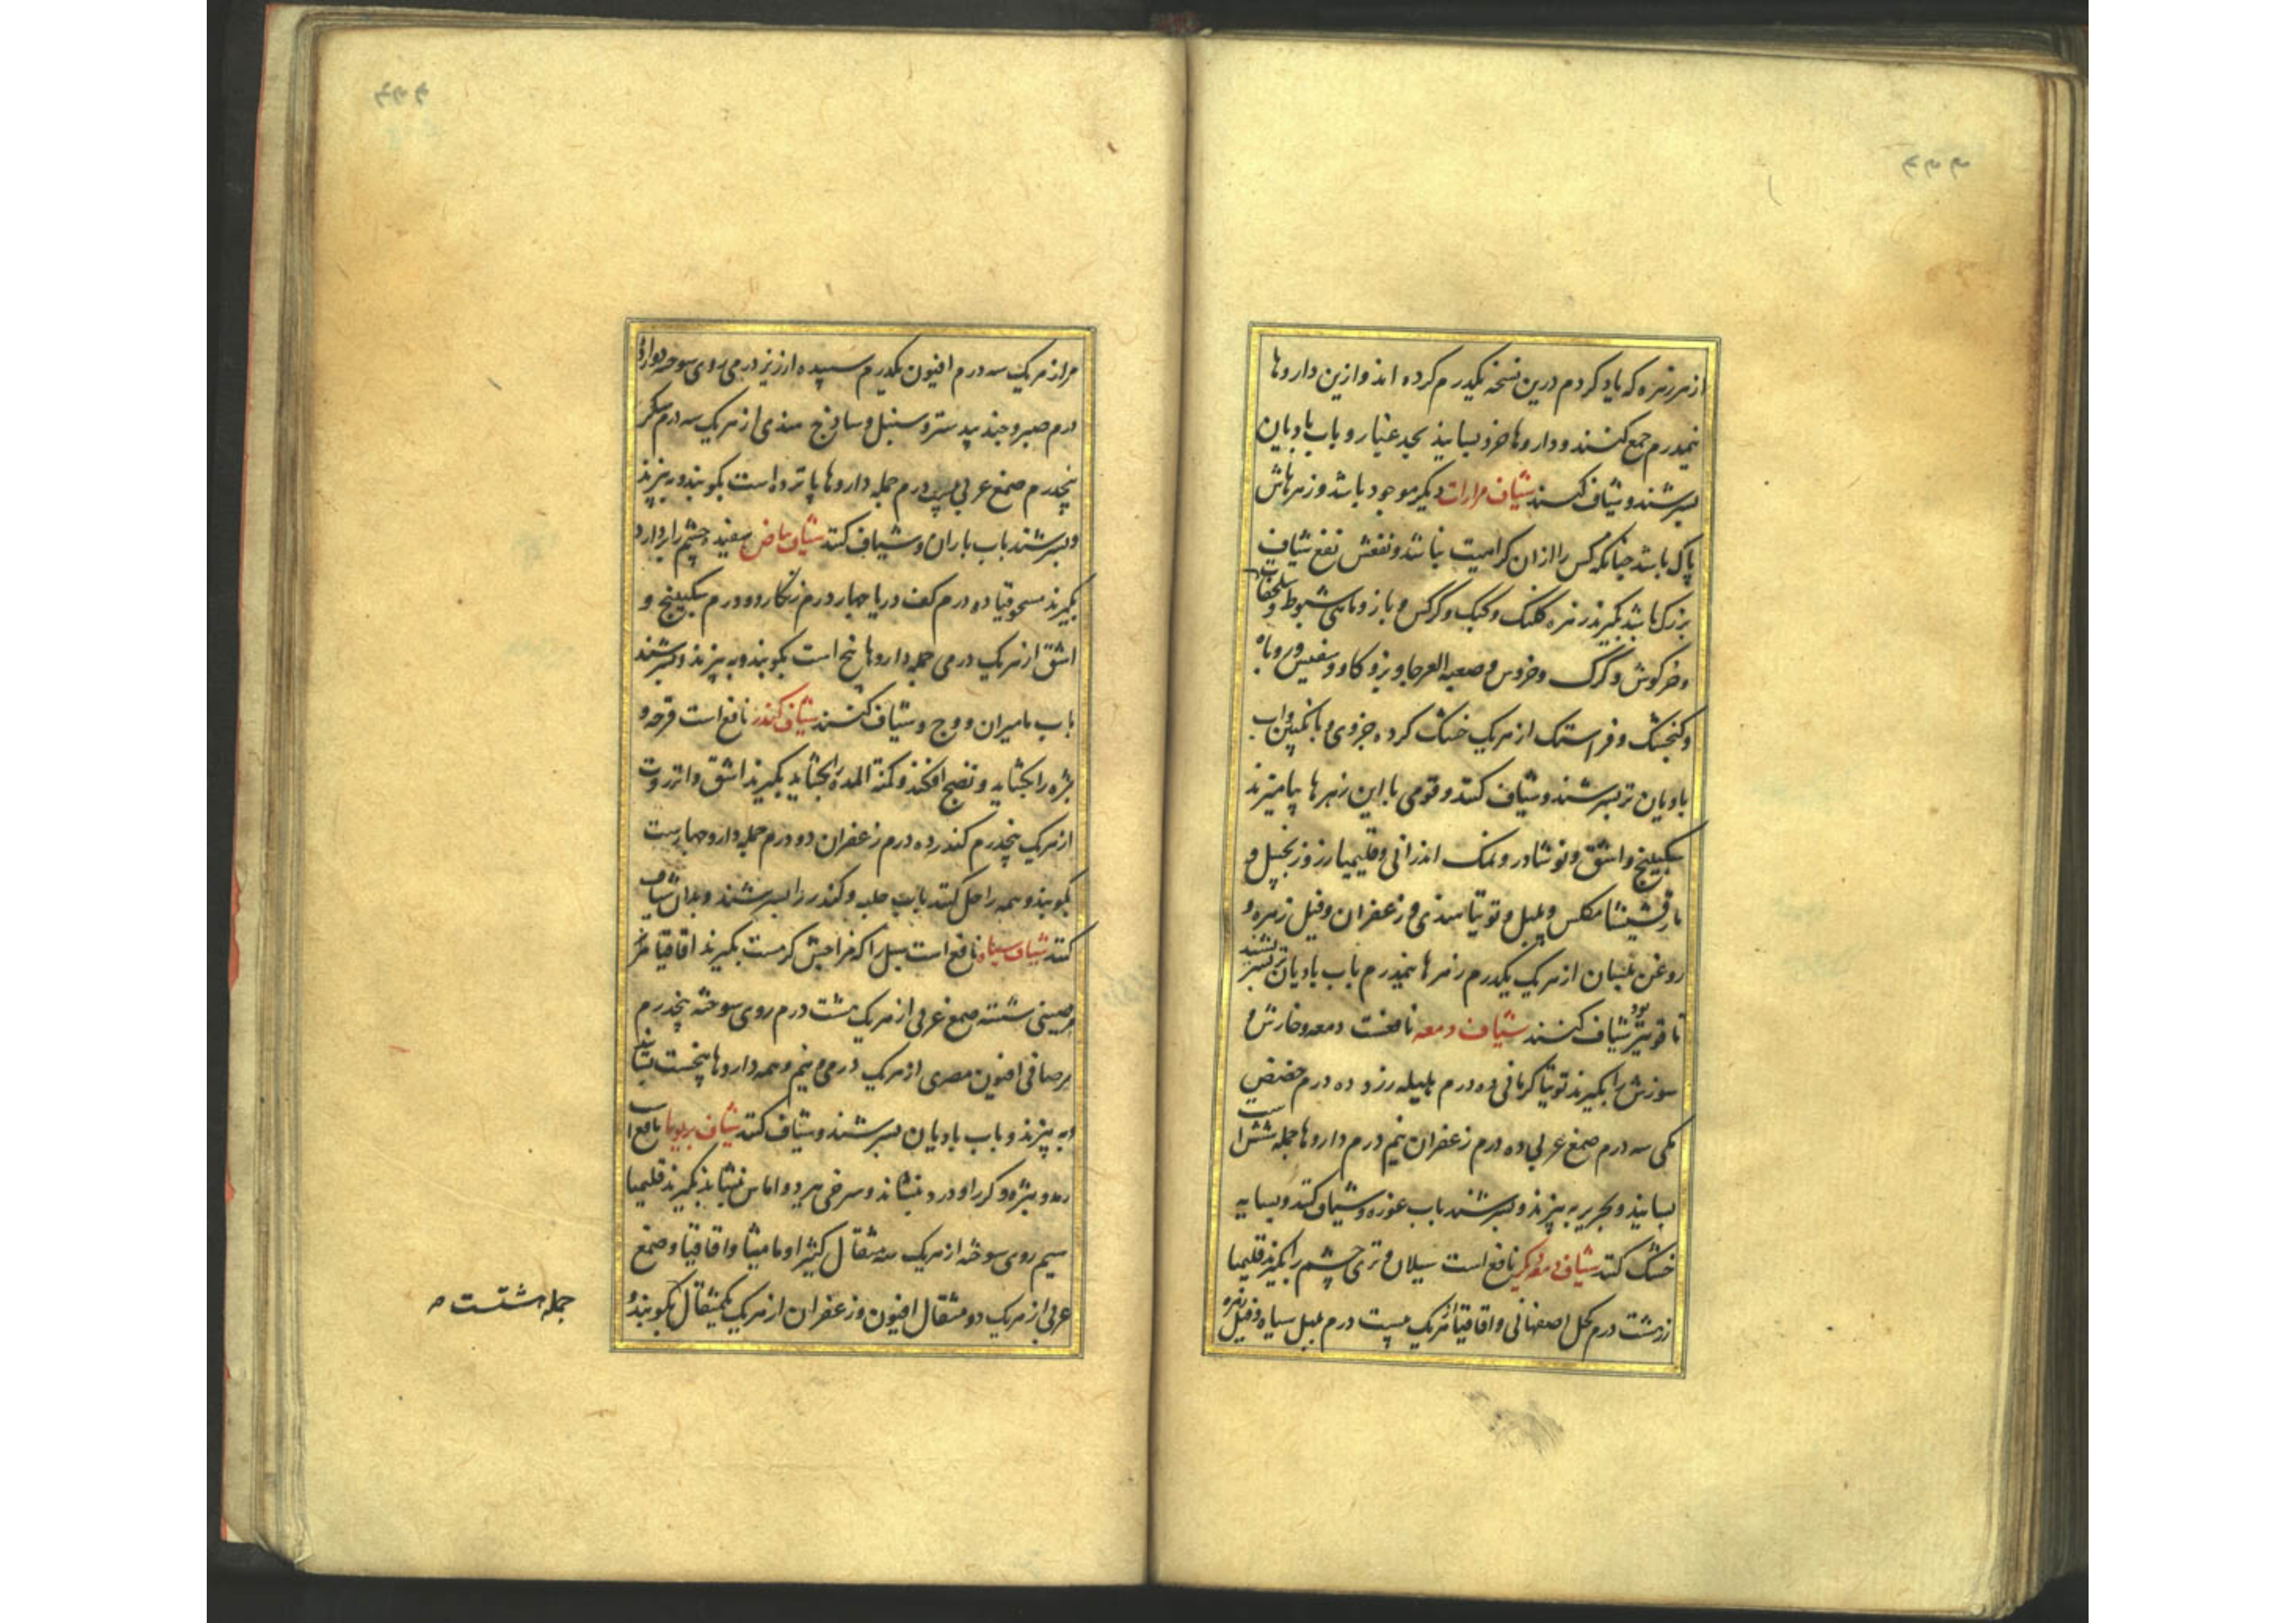 از هر زهره که یاد کردم درین نسخه یکدرم کرده اند و ازین داروها
نیمدرم جمع کنند و داروها خرد بسایند بحد غبار و باب بادیان
بسرشند و شیاف کنند شیاف مرارات دیگر موجود باشد و زهرهاش
پاک باشد چنانکه کس را ازان کراهیت نباشد و نفعش نفع شیاف
بزرک باشد بگیرند زهره کلنک و کبک و کرکس و باز و ماهی شبوط و سلحفات
و خرکوش و کرک و خروس و العرجا و بز و کاو و روباه
و کنجشک و فراستک از هریک خشک کرده جزوی و بانگبین و اب
بادیان تر بسرشند و شیاف کنند و قومی با این زهرها بیامیزند
سکبینج و اشق و نوشادر و نمک اندرانی و قلیمیا زر و زنجبیل و
مارقشیشا مکلس و پلپل و توتیا هندی و زعفران و فیل زهره و
روغن بلسان از هریک یکدرم زهرها نیمدرم باب بادیان تر بسرشند
تا قوی‌تر بود شیاف کنند شیاف دمعه نافعست دمعه و خارش و
سوزش را بگیرند توتیا کرمانی ده درم هلیله زرد ده درم حضض
مکی سه درم صمغ عربی ده درم زعفران نیم درم داروها جمله شش است
بسایند و بحریر به پزند و بسرشند باب غوره و شیاف کنند و بسایه
خشک کنند شیاف دمعه دیکر نافع است سیلان و تری چشم را بگیرند قلیمیا
زر هشت درم کحل اصفهانی و اقاقیا از هریک بیست درم پلپل سیاه و فیل زهره
مر از هریک سه درم افیون یکدرم سپیده ارزیز درمی روی سوخته دوازده
درم صبر و جند بیدستر و سنبل و ساذج هندی از هریک سه درم
پنجدرم صمغ عربی درم جمله داروها پانزده است بکوبند و به پزند
و بسرشند باب باران و شیاف کنند شیاف بیاض سفیده چشم را بردارد
بگیرند مسحوقنیا ده درم کف دریا چهار درم زنکار دو درم سکبینج و
اشق از هریک درمی جمله داروها پنج است بکوبند و به پزند و بسرشند
باب مامیران و وج و شیاف کنند شیاف کندر نافع است قرحه و
بثره را بکشاید و نضج افکند و کمنة المده را بکشاید بگیرند اشق و انزروت
از هریک پنجدرم کندر ده درم زعفران دو درم جمله دارو چهارست
بکوبند و همه را حل کنند باب حلبه و کندر را بسرشند و بدان شیاف
کنند شیاف سیاه نافع است سبل را که مزاجش کرمست بگیرند اقاقیا
شسته صمغ عربی از هریک هشت درم روی سوخته پنجدرم
صافی افیون مصری از هریک درمی و نیم و همه داروها پنجست بسایند
و به پزند و باب بادیان بسرشند و شیاف کنند شیاف نافع است
رمد و بثره و کر را و درد بنشاند و سرخی ببرد و اماس بنشاند بگیرند قلیمیا
سیم روی سوخته از هریک سه مثقال کثیرا و مامیثا و اقاقیا و صمغ
عربی از هریک دو مثقال افیون و زعفران از هریک یکمثقال بکوبند و
جمله هشتست